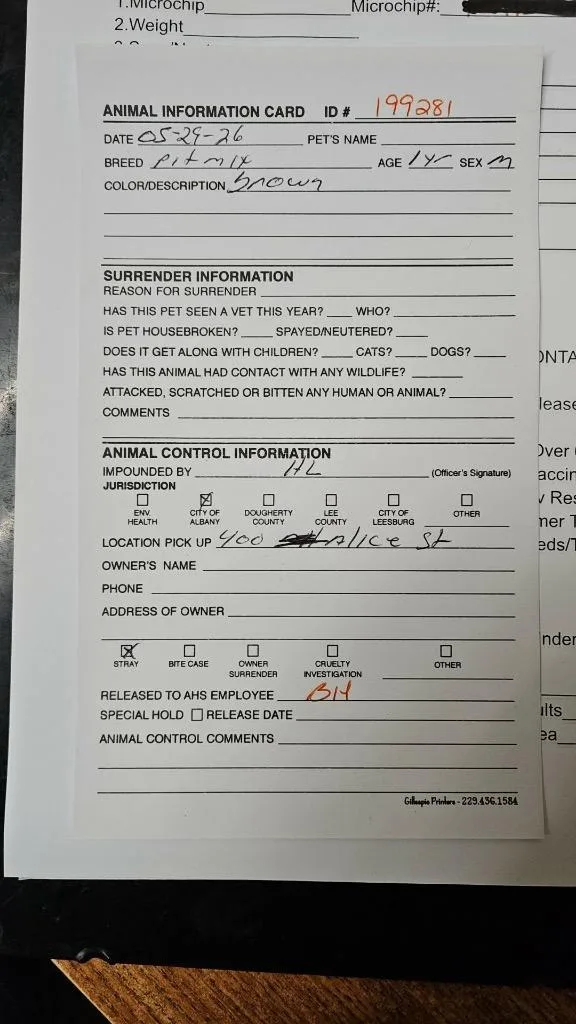 1.Microchip Microchip#:
2.Weight
ANIMAL INFORMATION CARD ID # 199281
DATE 05-29-26 PET'S NAME
BREED pit mix AGE 1yr SEX M
COLOR/DESCRIPTION brown
SURRENDER INFORMATION
REASON FOR SURRENDER
HAS THIS PET SEEN A VET THIS YEAR? WHO?
IS PET HOUSEBROKEN? SPAYED/NEUTERED?
DOES IT GET ALONG WITH CHILDREN? CATS? DOGS?
HAS THIS ANIMAL HAD CONTACT WITH ANY WILDLIFE?
ATTACKED, SCRATCHED OR BITTEN ANY HUMAN OR ANIMAL?
COMMENTS
ANIMAL CONTROL INFORMATION
IMPOUNDED BY HL (Officer's Signature)
JURISDICTION
ENV. HEALTH CITY OF ALBANY DOUGHERTY COUNTY LEE COUNTY CITY OF LEESBURG OTHER
LOCATION PICK UP 400 Alice St
OWNER'S NAME
PHONE
ADDRESS OF OWNER
STRAY BITE CASE OWNER SURRENDER CRUELTY INVESTIGATION OTHER
RELEASED TO AHS EMPLOYEE BH
SPECIAL HOLD RELEASE DATE
ANIMAL CONTROL COMMENTS
Gillespie Printers - 229.436.1584